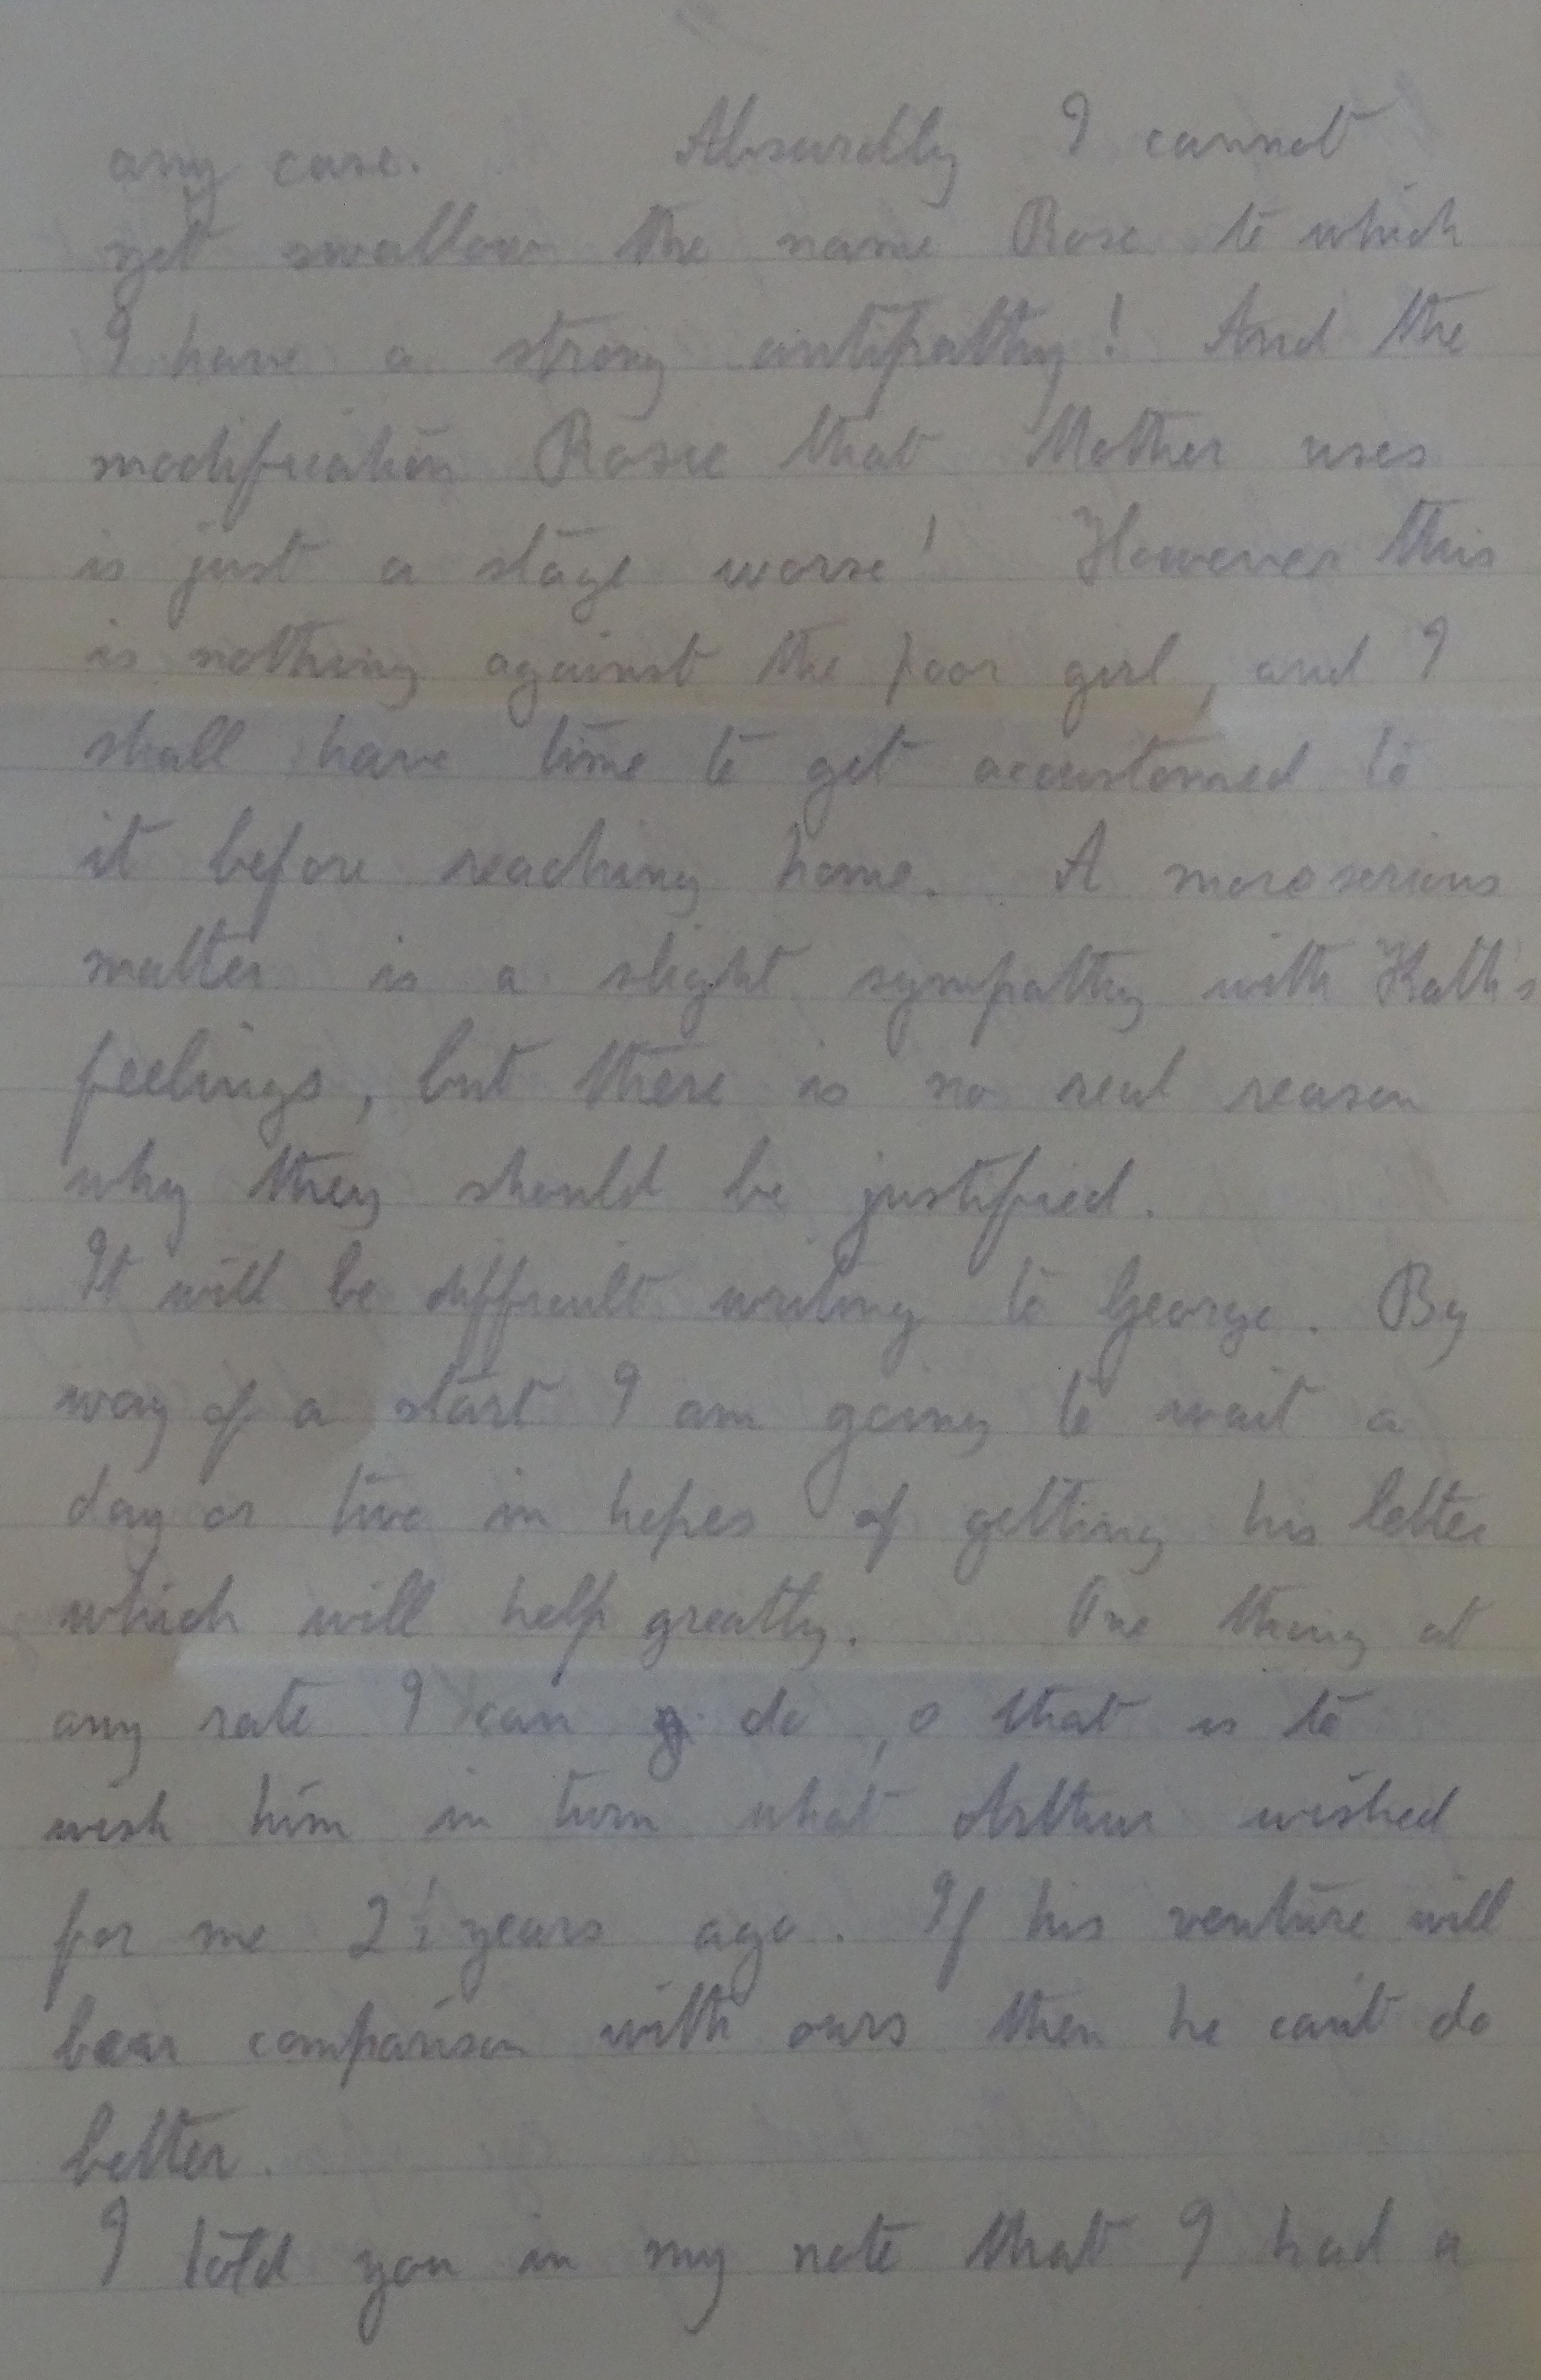 any case. Absurdly I cannot
yet swallow the name Rose to which
I have a strong antipathy! And the
modification Rosie that Mother uses
is just a stage worse! However this
is nothing against the poor girl, and I
shall have time to get accustomed to
it before reaching home. A more serious
matter is a slight sympathy with Kath's
feelings, but there is no real reason
why they should be justified.
It will be difficult writing to George. By
way of a start I am going to wait a
day or two in hopes of getting his letter
which will help greatly. One thing at
any rate I can do, o that is to
wish him in turn what Arthur wished
for me 2½ years ago. If his venture will
bear comparison with ours then he can't do
better.
I told you in my note that I had a